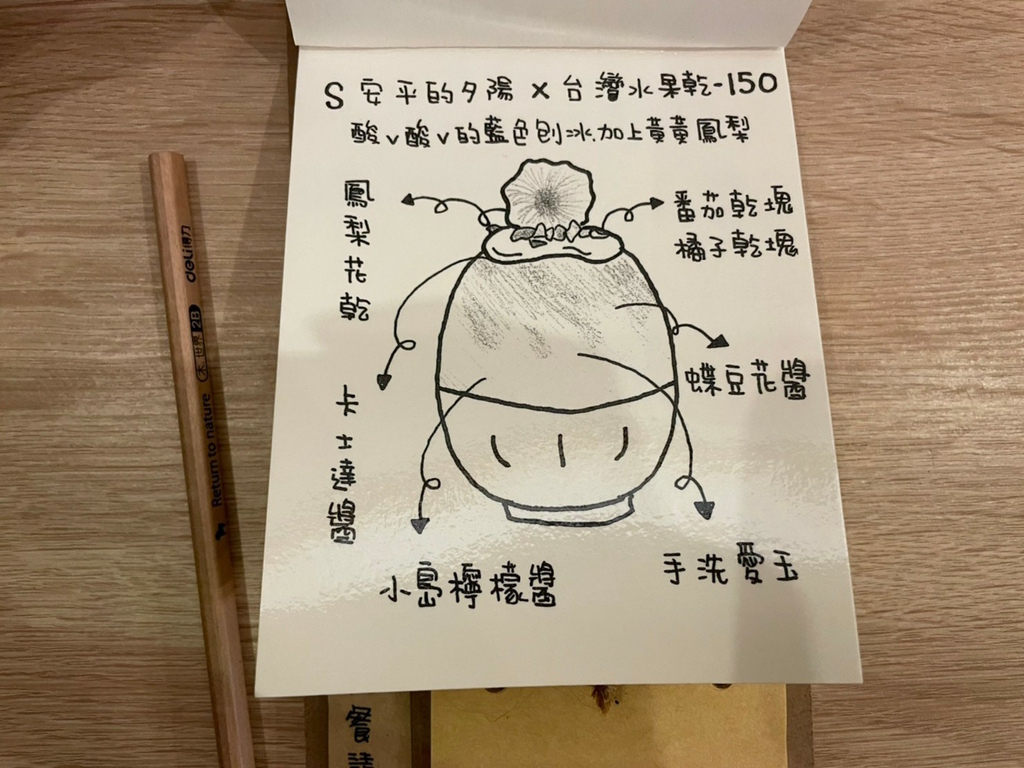 S 安平的夕陽 x 台灣水果乾-150
酸v酸v的藍色刨冰.加上黃黃鳳梨
鳳梨花乾
番茄乾塊
橘子乾塊
蝶豆花醬
卡士達醬
小島檸檬醬
手洗愛玉
deli得力
木世界 2B
Return to nature
餐